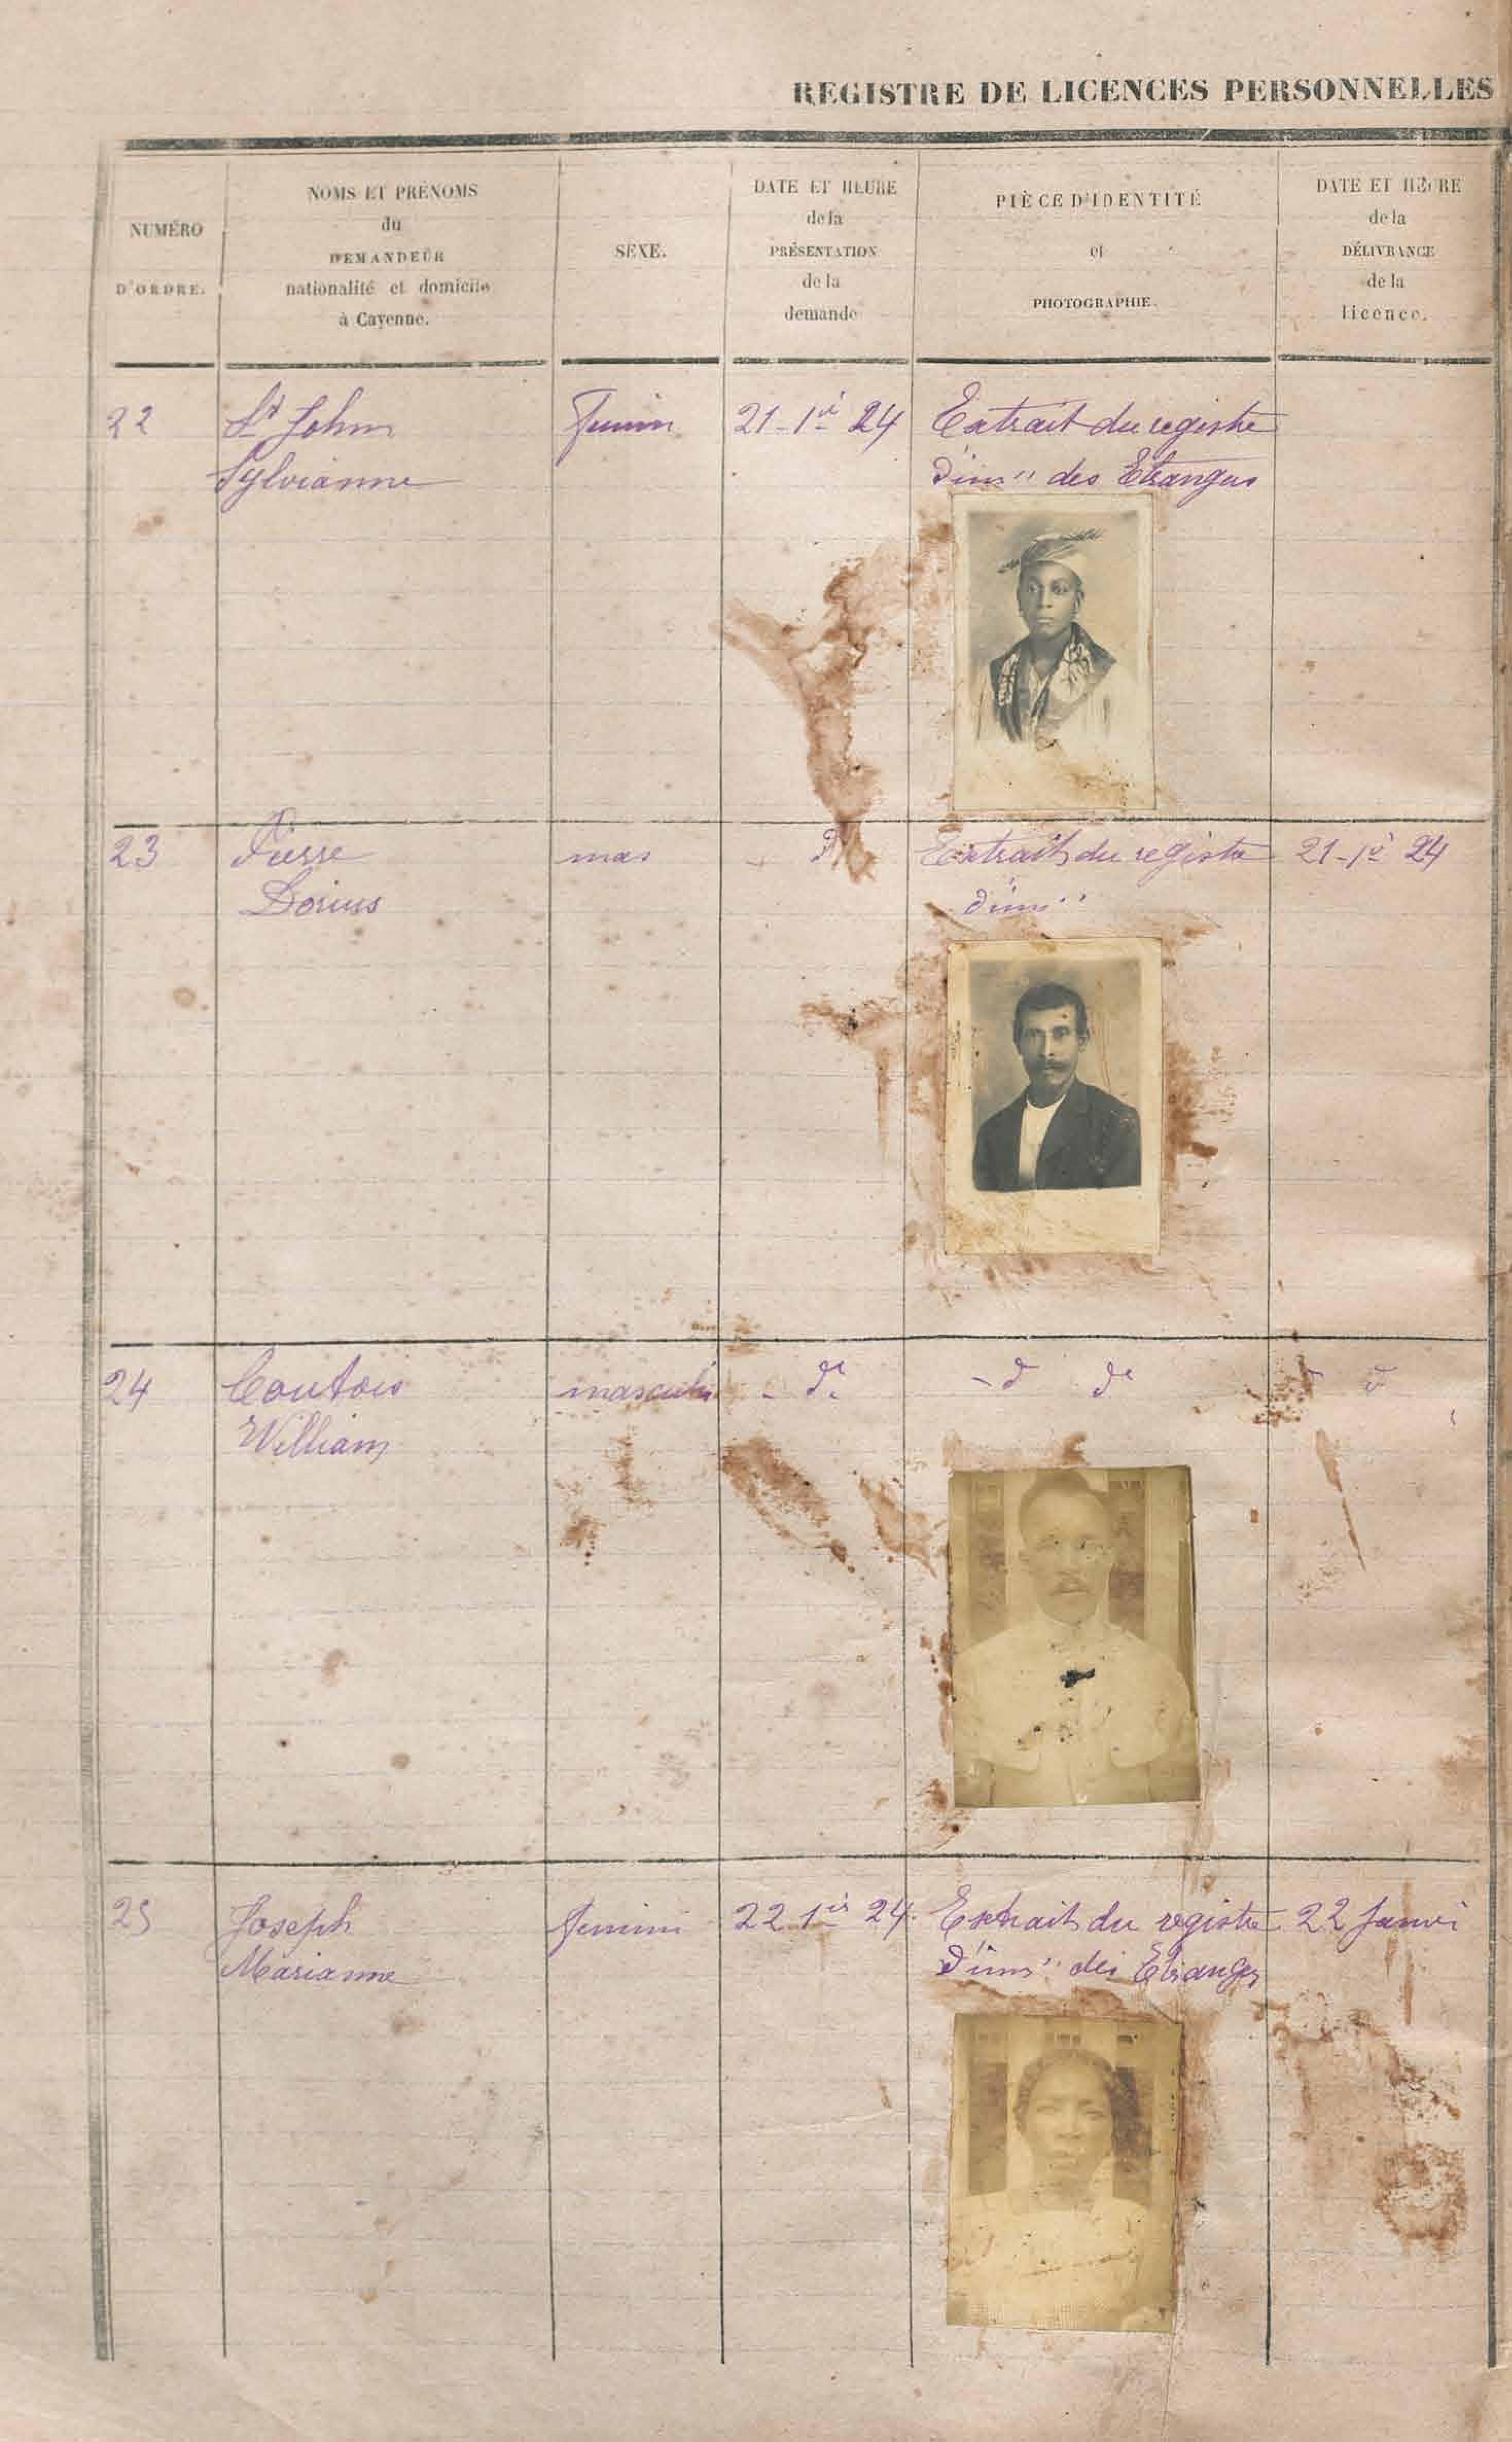 REGISTRE DE LICENCES PERSONNELLES
NUMÉRO
D'ORDRE.
NOMS ET PRÉNOMS
du
DEMANDEUR
nationalité et domicile
à Cayenne.
SEXE.
DATE ET HEURE
de la
PRÉSENTATION
de la
demande
PIÈCE D'IDENTITÉ
et
PHOTOGRAPHIE.
DATE ET HEURE
de la
DÉLIVRANCE
de la
licence.
22 St John 21-1er 24 Extrait du registre
Sylvianne des Etrangers
23 Pierre mas Extrait du registre 21-1er 24
Dorius
24 Coutois masculin - do - d do
William
25 Joseph 22 1er 24. Extrait du registre 22 Janvi
Marianne des Etrangers